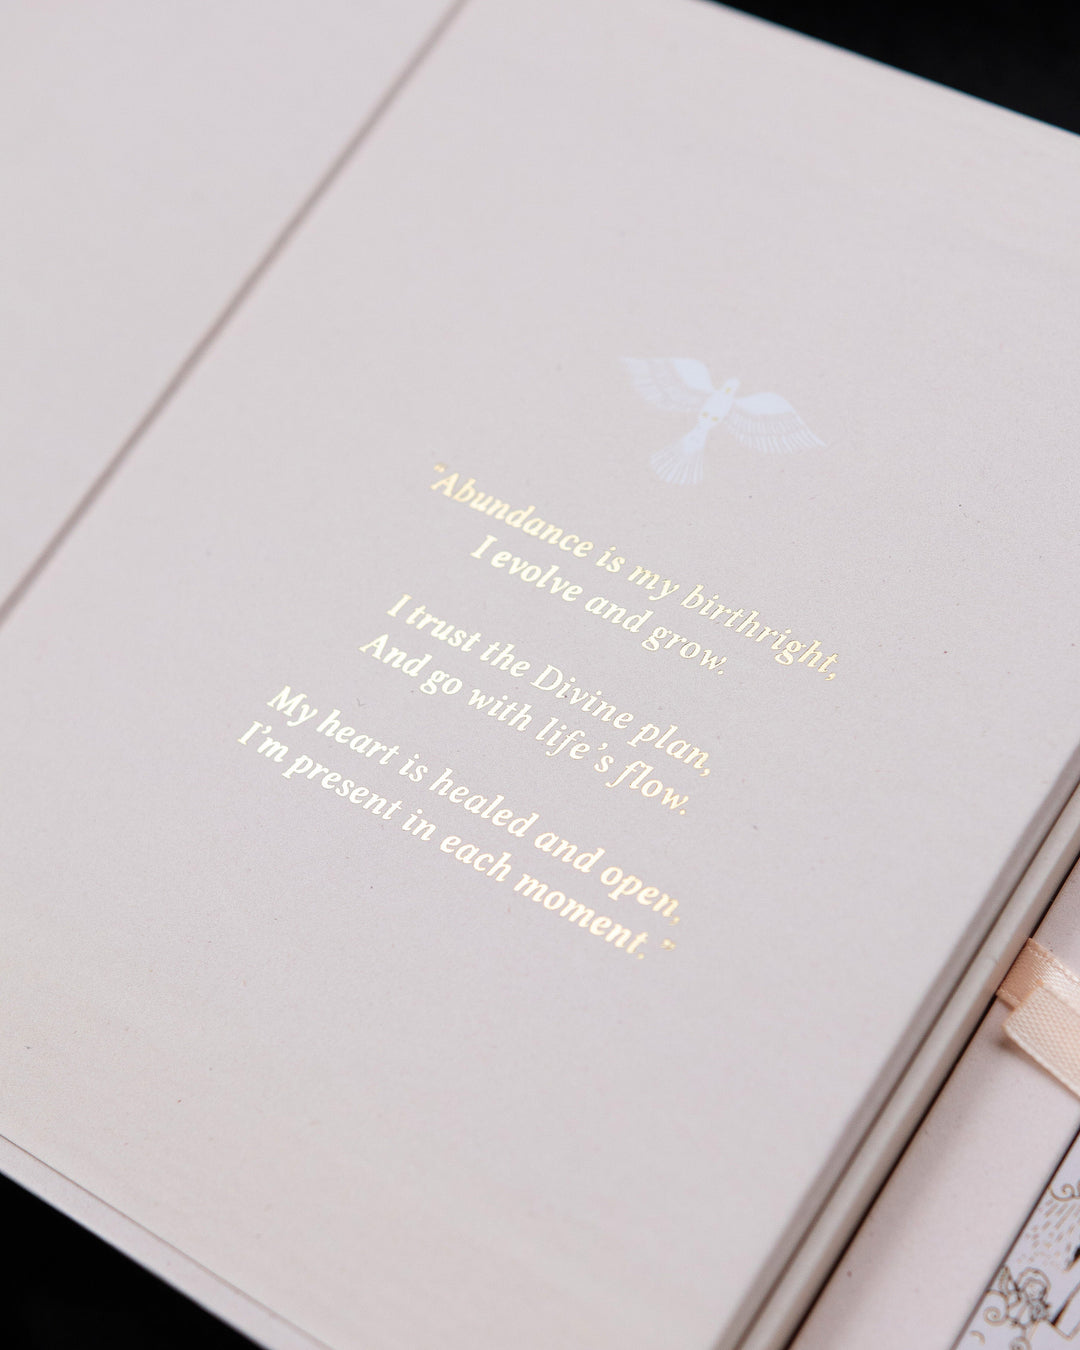 “Abundance is my birthright,
I evolve and grow.
I trust the Divine plan,
And go with life’s flow.
My heart is healed and open,
I’m present in each moment.”